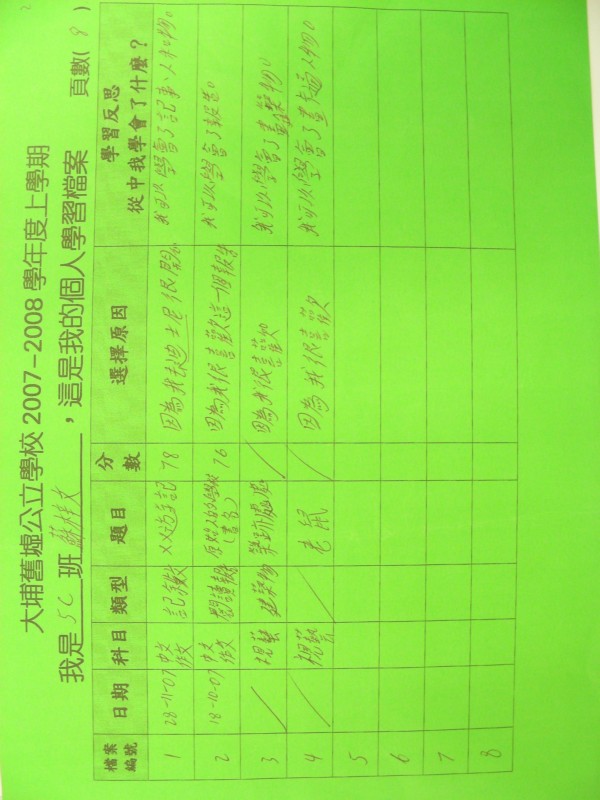 大埔舊墟公立學校 2007-2008 學年度上學期
我是 5C 班 蘇梓文 ，這是我的個人學習檔案 頁數( 8 )
檔案編號 日期 科目 類型 題目 分數 選擇原因 學習反思 從中我學會了什麼？
1 28-11-07 中文作文 記敘文 遊記 78 因為我去迪士尼很開心 我可以學會了記事、人和物。
2 18-10-07 中文作文 閱讀報告 (書名) 76 因為我很喜歡這一個報告 我可以學會了報告。
3 視藝 建築物 因為我很喜歡 我可以學會了畫建築物。
4 視藝 老鼠 因為我很喜歡 我可以學會了畫卡通人物。
5
6
7
8
2